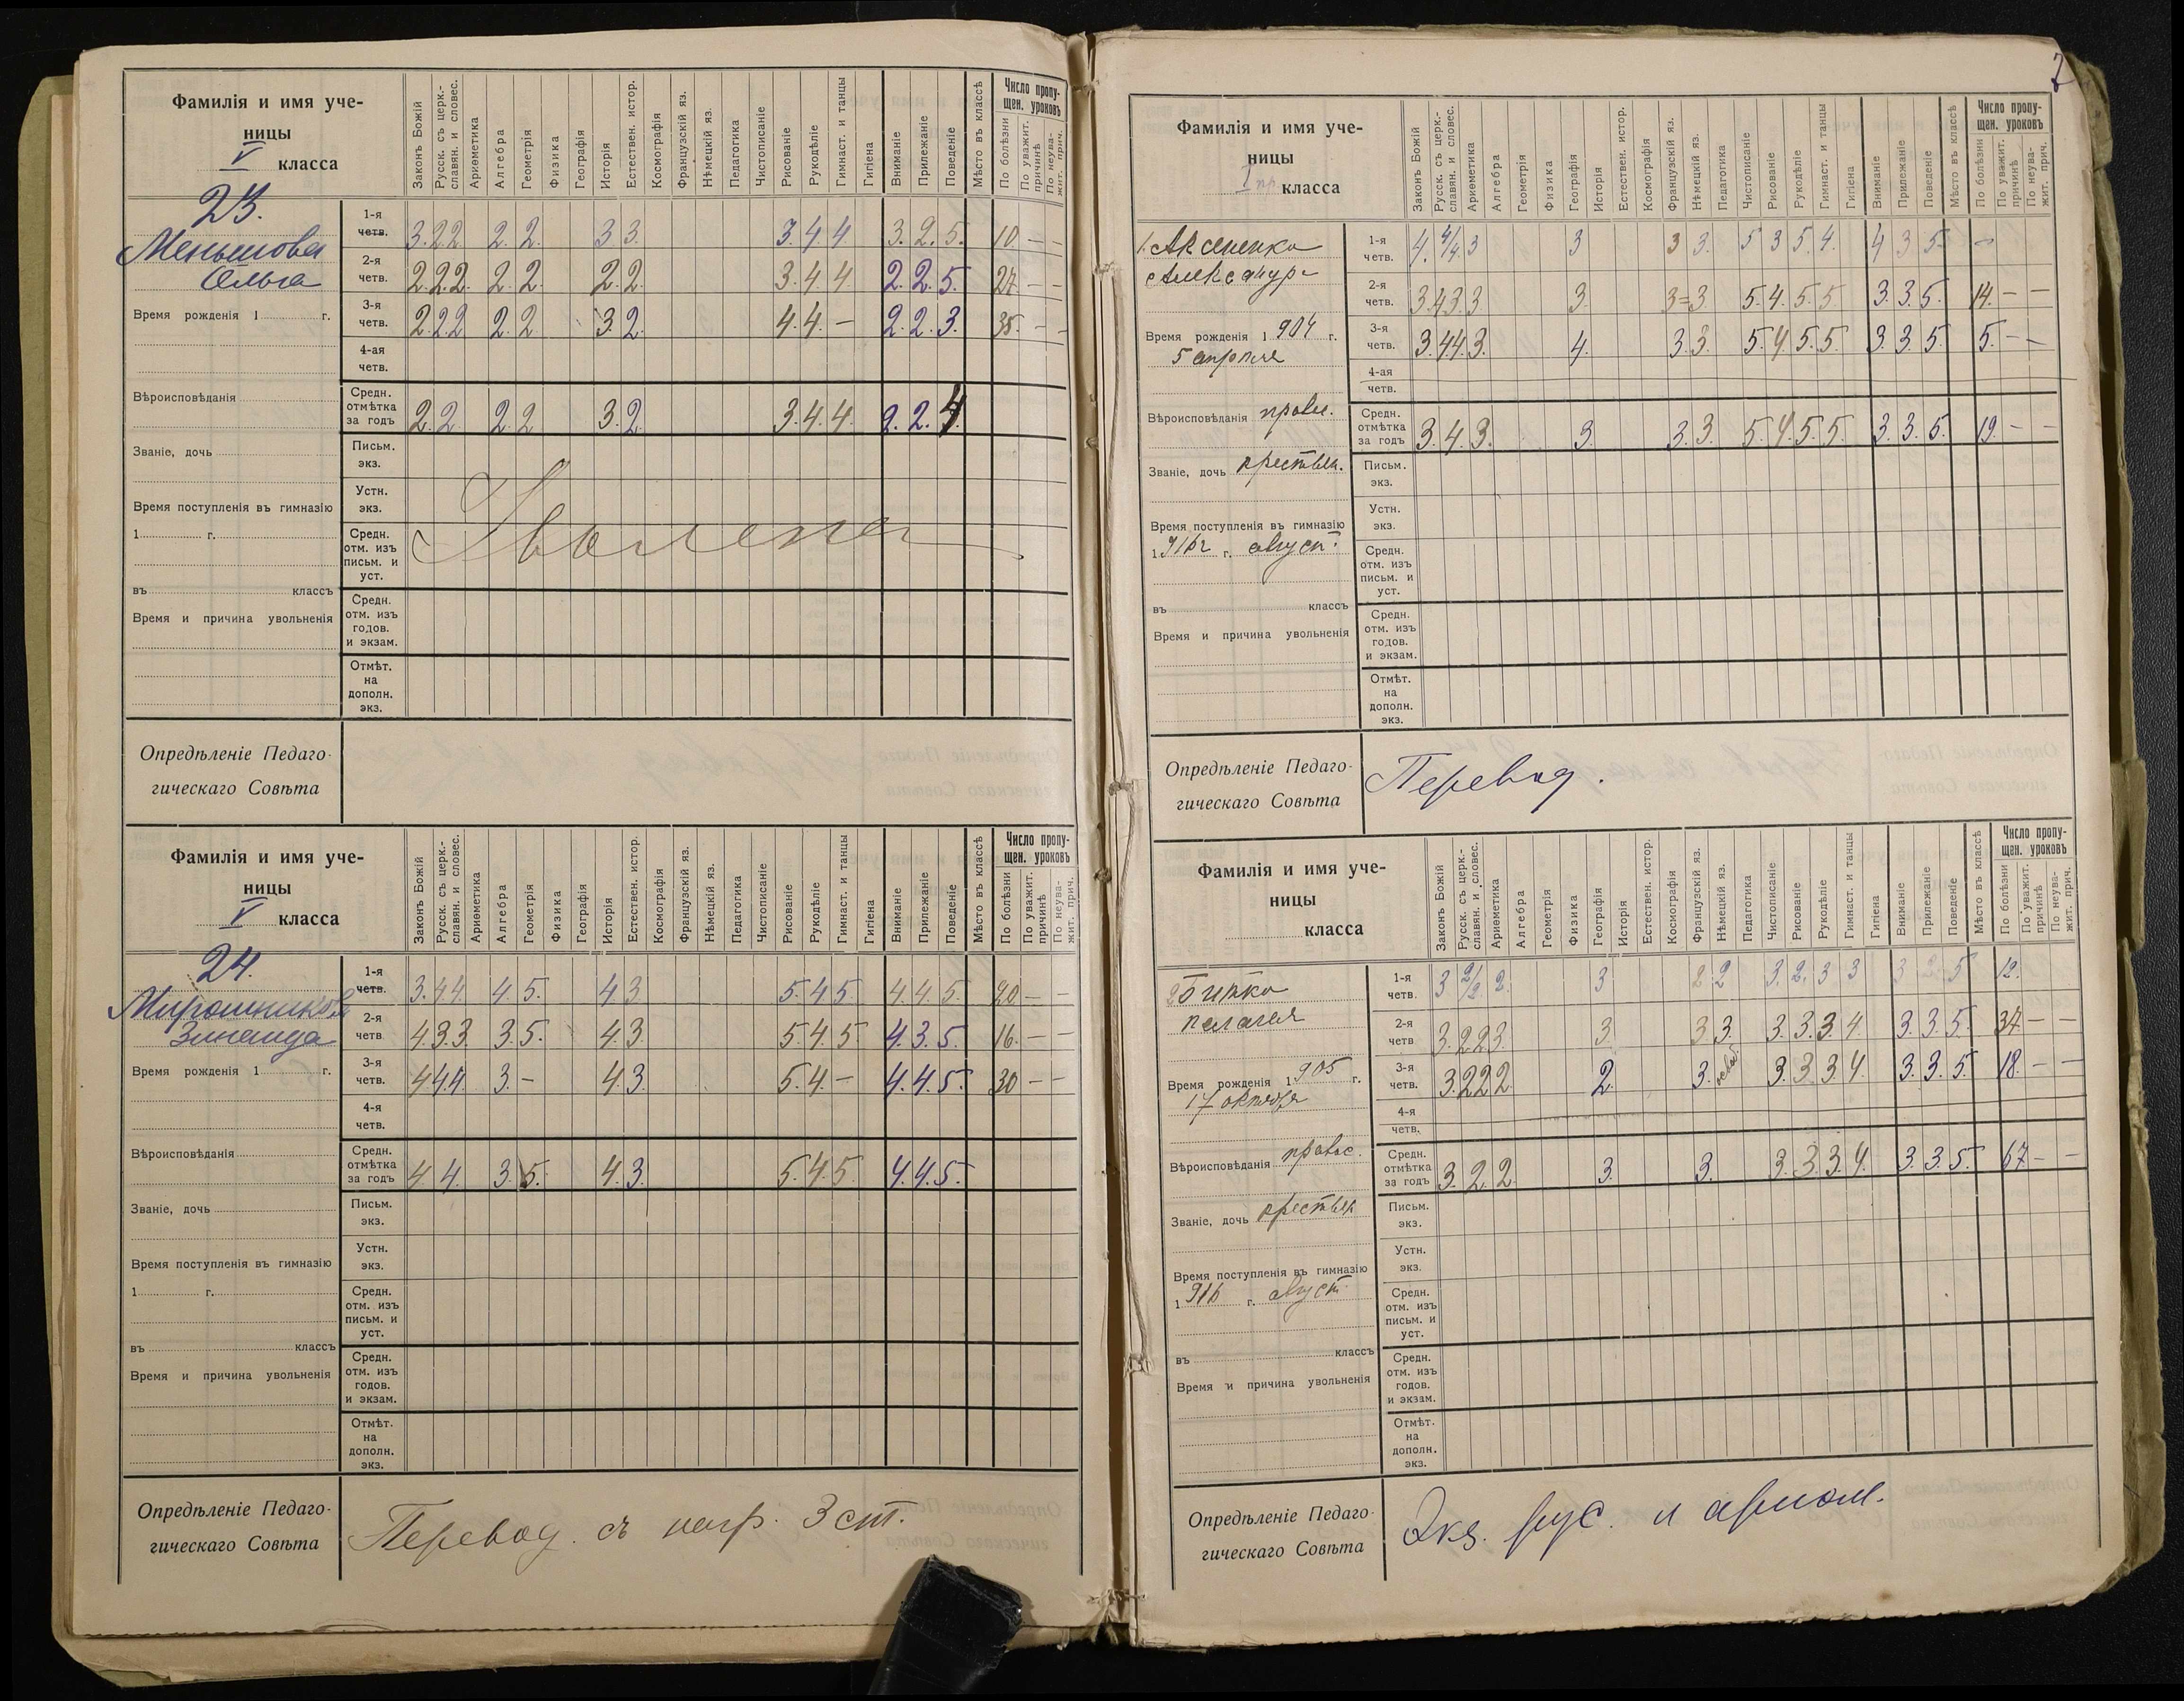 Фамилія и имя уче-
ницы
V класса
Законъ Божій
Русск. съ церк.-
славян. и словес.
Ариѳметика
Алгебра
Геометрія
Физика
Географія
Исторія
Естествен. истор.
Космографія
Французскій яз.
Нѣмецкій яз.
Педагогика
Чистописаніе
Рисованіе
Рукодѣліе
Гимнаст. и танцы
Гигіена
Вниманіе
Прилежаніе
Поведеніе
Мѣсто въ классѣ
Число пропу-
щен. уроковъ
По болѣзни
По уважит.
причинѣ
По неува-
жит. прич.
23.
Меньшова
Ольга
Время рожденія 1 г.
Вѣроисповѣданія
Званіе, дочь
Время поступленія въ гимназію
1 г.
въ классъ
Время и причина увольненія
1-я четв. 3. 2 2 2. 2. 3 3. 3. 4. 4 3. 2. 5. 10. — —
2-я четв. 2. 2. 2. 2. 2. 2. 2. 3. 4. 4 2. 2. 5. 27. — —
3-я четв. 2. 2 2 2. 2 3. 2. 4. 4. — 2. 2. 3. 38. — —
4-ая четв.
Средн. отмѣтка за годъ 2. 2 2. 2 3. 2. 3. 4. 4. 2. 2. 4.
Письм. экз.
Устн. экз.
Уволена
Средн. отм. изъ письм. и уст.
Средн. отм. изъ годов. и экзам.
Отмѣт. на дополн. экз.
Опредѣленіе Педаго-
гическаго Совѣта
Фамилія и имя уче-
ницы
V класса
Законъ Божій
Русск. съ церк.-
славян. и словес.
Ариѳметика
Алгебра
Геометрія
Физика
Географія
Исторія
Естествен. истор.
Космографія
Французскій яз.
Нѣмецкій яз.
Педагогика
Чистописаніе
Рисованіе
Рукодѣліе
Гимнаст. и танцы
Гигіена
Вниманіе
Прилежаніе
Поведеніе
Мѣсто въ классѣ
Число пропу-
щен. уроковъ
По болѣзни
По уважит.
причинѣ
По неува-
жит. прич.
24.
Мирошникова
Зинаида
Время рожденія 1 г.
Вѣроисповѣданія
Званіе, дочь
Время поступленія въ гимназію
1 г.
въ классъ
Время и причина увольненія
1-я четв. 3. 4 4. 4 5. 4 3 5. 4 5 4. 4. 5. 20 — —
2-я четв 4. 3. 3. 3. 5. 4 3. 5. 4. 5 4. 3. 5. 16. — —
3-я четв. 4 4 4. 3. — 4 3. 5. 4 — 4. 4. 5. 30 — —
4-я четв.
Средн. отмѣтка за годъ 4 4. 3. 5. 4. 3. 5. 4. 5 4. 4. 5.
Письм. экз.
Устн. экз.
Средн. отм. изъ письм. и уст.
Средн. отм. изъ годов. и экзам.
Отмѣт. на дополн. экз.
Опредѣленіе Педаго-
гическаго Совѣта
Перевод. съ нагр. 3 ст.
7
Фамилія и имя уче-
ницы
I класса
Законъ Божій
Русск. съ церк.-
славян. и словес.
Ариѳметика
Алгебра
Геометрія
Физика
Географія
Исторія
Естествен. истор.
Космографія
Французскій яз.
Нѣмецкій яз.
Педагогика
Чистописаніе
Рисованіе
Рукодѣліе
Гимнаст. и танцы
Гигіена
Вниманіе
Прилежаніе
Поведеніе
Мѣсто въ классѣ
Число пропу-
щен. уроковъ
По болѣзни
По уважит.
причинѣ
По неува-
жит. прич.
1. Аксененко
Александр
Время рожденія 1904 г.
5 апреля
Вѣроисповѣданія правсл.
Званіе, дочь крестьян.
Время поступленія въ гимназію
1916 г. август.
въ классъ
Время и причина увольненія
1-я четв. 4. 4/4. 3 3 3 3. 5 3 5. 4. 4 3 5 —
2-я четв. 3. 4 3. 3 3. 3= 3. 5. 4. 5. 5 3. 3. 5. 14. — —
3-я четв. 3. 4 4. 3. 4. 3. 3. 5. 4. 5. 5. 3. 3. 5. 5. — —
4-ая четв.
Средн. отмѣтка за годъ 3. 4. 3. 3. 3. 3. 5. 4. 5. 5. 3. 3. 5. 19. — —
Письм. экз.
Устн. экз.
Средн. отм. изъ письм. и уст.
Средн. отм. изъ годов. и экзам.
Отмѣт. на дополн. экз.
Опредѣленіе Педаго-
гическаго Совѣта
Перевод.
Фамилія и имя уче-
ницы
класса
Законъ Божій
Русск. съ церк.-
славян. и словес.
Ариѳметика
Алгебра
Геометрія
Физика
Географія
Исторія
Естествен. истор.
Космографія
Французскій яз.
Нѣмецкій яз.
Педагогика
Чистописаніе
Рисованіе
Рукодѣліе
Гимнаст. и танцы
Гигіена
Вниманіе
Прилежаніе
Поведеніе
Мѣсто въ классѣ
Число пропу-
щен. уроковъ
По болѣзни
По уважит.
причинѣ
По неува-
жит. прич.
2 Битко
Пелагея
Время рожденія 1905 г.
17 октября
Вѣроисповѣданія правос.
Званіе, дочь крестьян
Время поступленія въ гимназію
1916 г. август.
въ классъ
Время и причина увольненія
1-я четв. 3 2/2 2. 3 2 2 3. 2. 3 3 3 2. 5 12.
2-я четв 3. 2 2 3. 3. 3 3. 3. 3. 3 4. 3. 3. 5. 34 — —
3-я четв. 3. 2 2 2 2. 3. 3. 3 3 4. 3. 3. 5 18. — —
4-я четв.
Средн. отмѣтка за годъ 3. 2. 2. 3. 3. 3. 3. 3. 4. 3. 3. 5. 67 — —
Письм. экз.
Устн. экз.
Средн. отм. изъ письм. и уст.
Средн. отм. изъ годов. и экзам.
Отмѣт. на дополн. экз.
Опредѣленіе Педаго-
гическаго Совѣта
Экз. рус. и